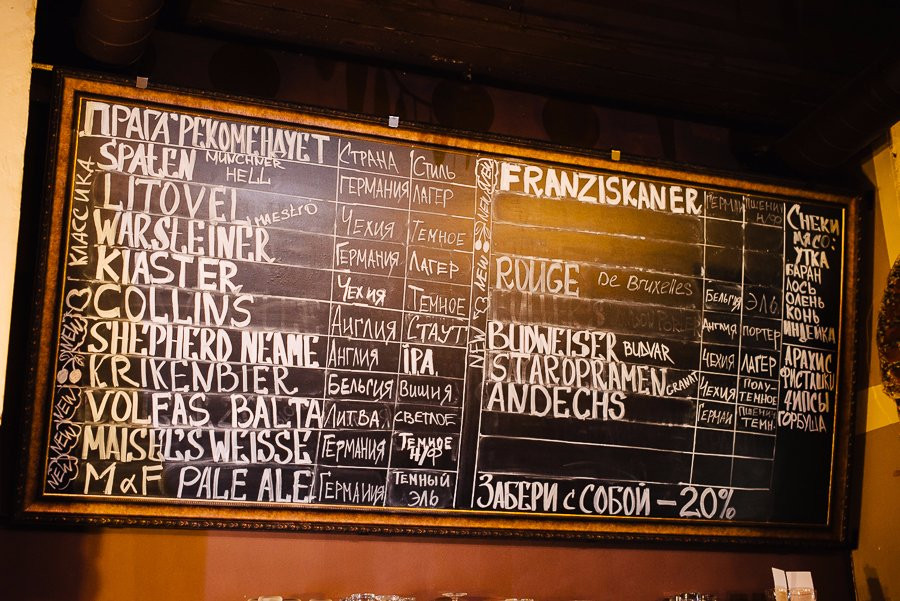 ПРАГА РЕКОМЕНДУЕТ СТРАНА СТИЛЬ
КЛАССИКА
SPATEN MÜNCHNER HELL ГЕРМАНИЯ ЛАГЕР
LITOVEL MAESTRO ЧЕХИЯ ТЕМНОЕ
WARSTEINER ГЕРМАНИЯ ЛАГЕР
KLASTER ЧЕХИЯ ТЕМНОЕ
COLLINS АНГЛИЯ СТАУТ
SHEPHERD NEAME АНГЛИЯ IPA.
KRIKENBIER БЕЛЬГИЯ ВИШНЯ.
VOLFAS BALTA ЛИТВА. СВЕТЛОЕ
MAISEL'S WEISSE ГЕРМАНИЯ ТЕМНОЕ Н/Ф
M&F PALE ALE. ГЕРМАНИЯ ТЕМНЫЙ ЭЛЬ
NEW NEW NEW
NEW NEW NEW
FRANZISKANER ПШЕНИ Н/Ф
ROUGE De BRuxelles БЕЛЬГИЯ ЭЛЬ
АНГЛИЯ ПОРТЕР
BUDWEISER BUDVAR ЧЕХИЯ ЛАГЕР
STAROPRAMEN GRANAT ЧЕХИЯ ПОЛУ-ТЕМНОЕ
ANDECHS ГЕРМАН ПШЕНИЧ ТЕМН.
ЗАБЕРИ С СОБОЙ -20%
СНЕКИ
МЯСО:
УТКА
БАРАН
ЛОСЬ
ОЛЕНЬ
КОНЬ
ИНДЕЙКА
АРАХИС
ФИСТАШКИ
ЧИПСЫ
ГОРБУША